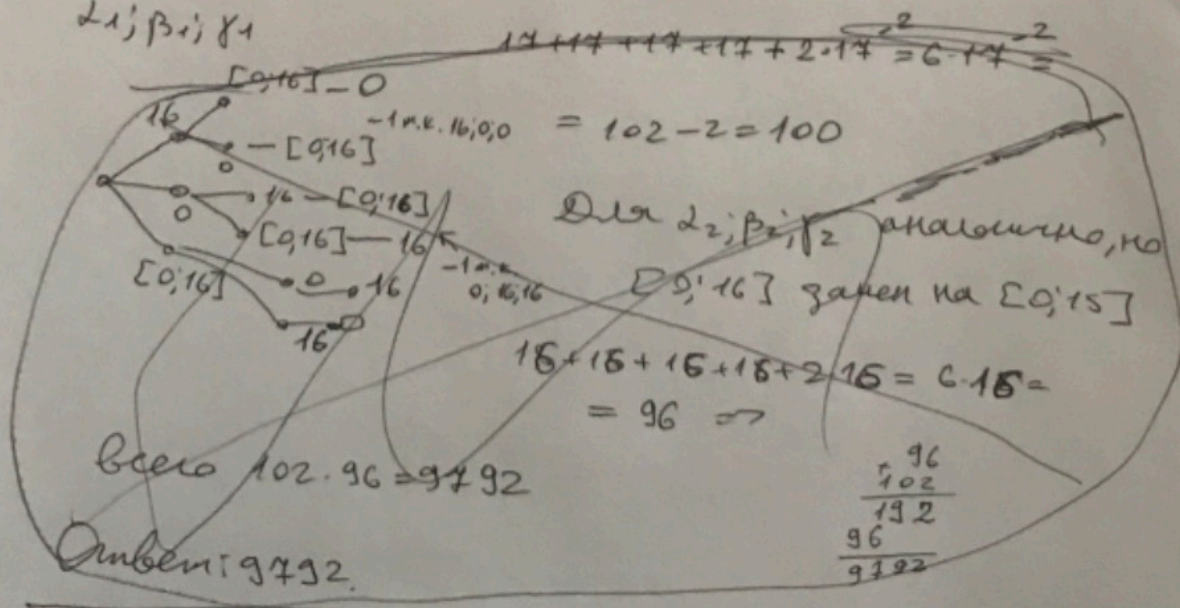 α₁; β₁; γ₁
17+17+17+17+2·17 -2 = 6·17 -2 =
[0;16] — 0
16
-1 т.к. 16;0;0 = 102-2=100
— [0;16]
0
16 — [0;16]
0
[0;16] — 16
-1 т.к. 0;16;16
[0;16]
0 16
16 0
Для α₂; β₂; γ₂ аналогично, но
[0;16] замен на [0;15]
16+16+16+16+2·16 = 6·16 =
= 96 =>
Всего 102·96=9792
96
102
192
96
9792
Ответ: 9792.